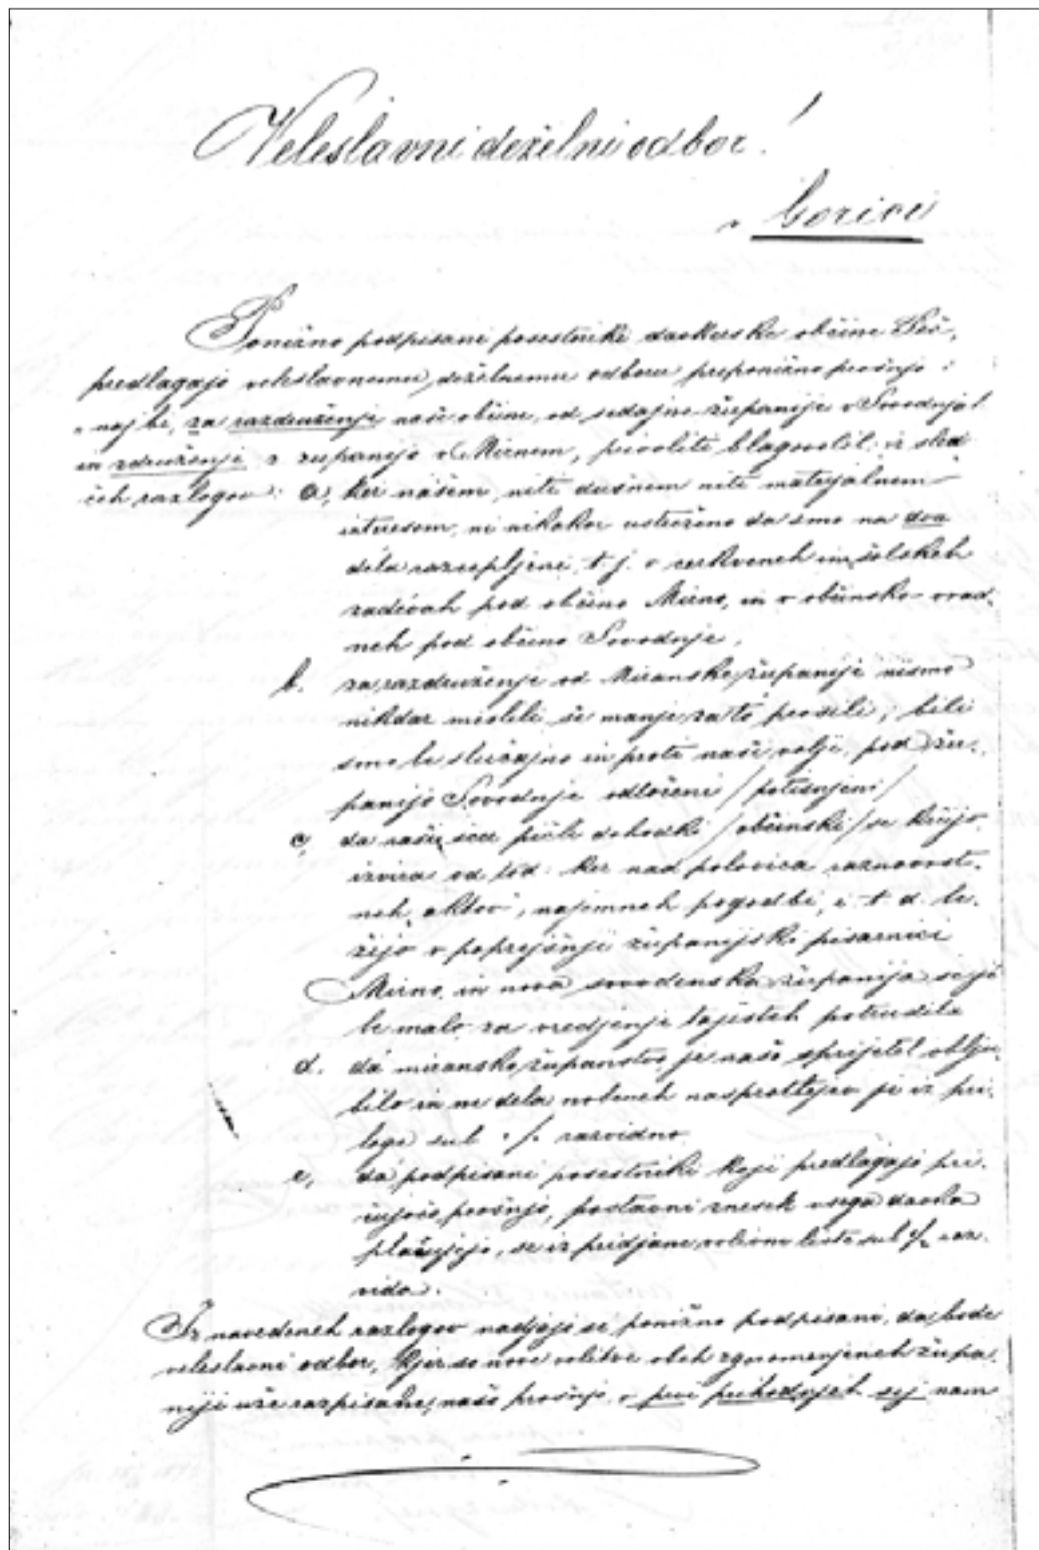 Veleslavni deželni odbor!
v Gorici
Ponižno podpisani posestniki davkarske občine Peč,
predlagajo veleslavnemu deželnemu odboru preponižno prošnjo:
naj bi za razdruženje naše občine od sedajne županije v Sovodnjah
in združenje z županijo v Mirnem, privoliti blagovolil iz sled-
ečih razlogov: a, ker našem niti dušnem niti materijalnem
interesom, ni nikakor ustreženo da smo na dva
dela razcepljeni, t. j. v cerkvenih in šolskih
zadevah pod občino Mirno, in v občinsko-vrad-
nih pod občino Sovodnje,
b. za razdruženje od Miranske županije nismo
nikdar mislili še manje za to prosili; bili
smo le slučajno in proti naši volji, pod žu-
panijo Sovodnje odločeni / potisnjeni /
c, da naši sicer pičli dohodki / občinski / se
izvira od tod ker nad polovica raznovrst-
nih aktov, najemnih pogodbi, i. t. d. le-
žijo v poprejšnji županijski pisarnici
Mirno in nova sovodenska županija se je
le malo za vredjenje tajistih potrudila
d. da miransko županstvo je naše sprijetel oblju-
bilo in ne dela nobenih je iz pri-
loge sub ./. razvidno.
e, da podpisani posestniki koji predlagajo pri-
čujočo prošnjo, postavni znesek vsega davka
plačujejo, se iz pridjane volivne liste sub ./. raz-
vida.
Iz navedenih razlogov nadjajo se ponižno podpisani, da bode
veleslavni odbor, kjer so nove volitve obeh zgoromenjenih župa-
niji uže razpisane, našo prošnjo v prvi prihodnjih sej nam